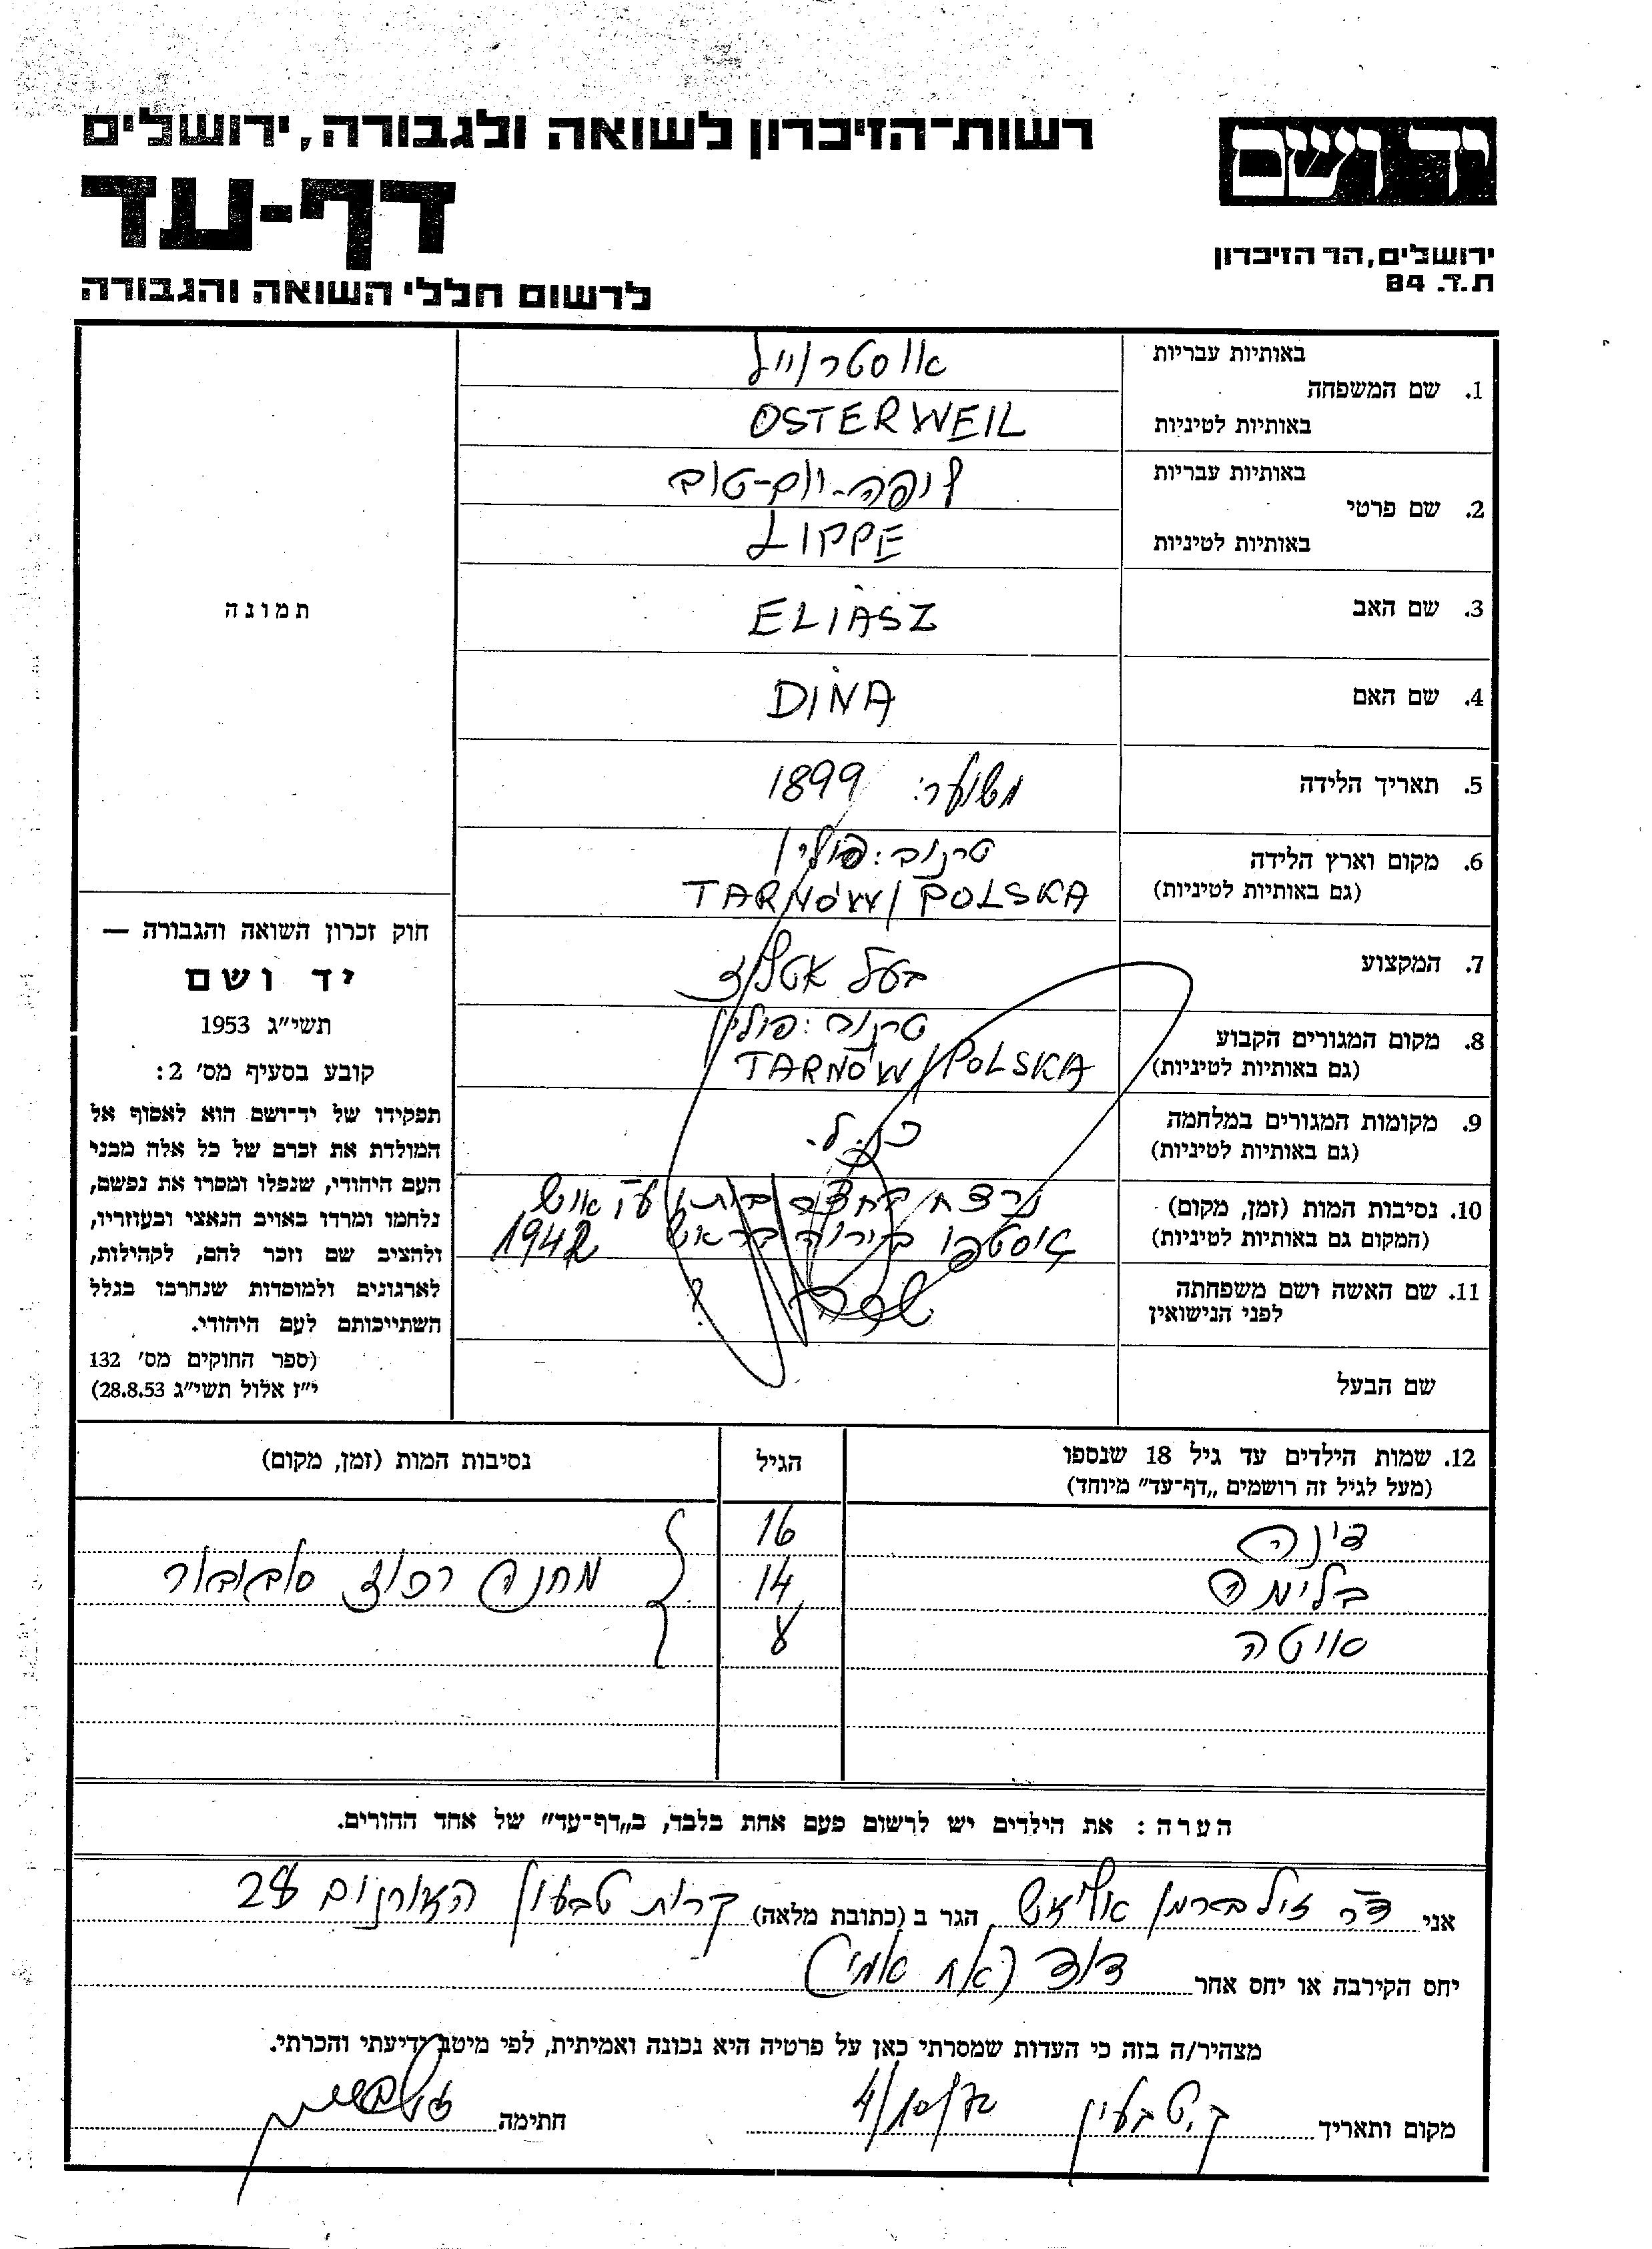 רשות־הזיכרון לשואה ולגבורה, ירושלים
יד ושם
דף-עד
ירושלים, הר הזיכרון
ת.ד. 84
לרשום חללי השואה והגבורה
באותיות עבריות
אוסטרוייל
1. שם המשפחה
באותיות לטיניות
OSTERWEIL
באותיות עבריות
ליפה-יום-טוב
2. שם פרטי
באותיות לטיניות
LIPPE
3. שם האב
ELIASZ
4. שם האם
DINA
5. תאריך הלידה
משוער: 1899
6. מקום וארץ הלידה
(גם באותיות לטיניות)
טרנוב: פולין
TARNÓW/POLSKA
7. המקצוע
בעל אטליז
8. מקום המגורים הקבוע
(גם באותיות לטיניות)
טרנוב: פולין
TARNÓW/POLSKA
9. מקומות המגורים במלחמה
(גם באותיות לטיניות)
כנ.ל.
10. נסיבות המות (זמן, מקום)
(המקום גם באותיות לטיניות)
נרצח בחצר ביתו ע"י איש
גוסטפו ביריה בראש 1942
11. שם האשה ושם משפחתה
לפני הנישואין
?
שם הבעל
תמונה
חוק זכרון השואה והגבורה —
יד ושם
תשי"ג 1953
קובע בסעיף מס' 2:
תפקידו של יד־ושם הוא לאסוף אל
המולדת את זכרם של כל אלה מבני
העם היהודי, שנפלו ומסרו את נפשם,
נלחמו ומרדו באויב הנאצי ובעוזריו,
ולהציב שם וזכר להם, לקהילות,
לארגונים ולמוסדות שנחרבו בגלל
השתייכותם לעם היהודי.
(ספר החוקים מס' 132
י"ז אלול תשי"ג 28.8.53)
12. שמות הילדים עד גיל 18 שנספו
(מעל לגיל זה רושמים „דף־עד" מיוחד)
הגיל
נסיבות המות (זמן, מקום)
דינה 16
בלימה 14 מחנה רכוז סובובור
סוטה
הערה: את הילדים יש לרשום פעם אחת בלבד, ב„דף־עד" של אחד ההורים.
אני דר זילברמן אליאש הגר ב (כתובת מלאה) קרית טבעון האורנים 28
יחס הקירבה או יחס אחר דוד (אח אמי)
מצהיר/ה בזה כי העדות שמסרתי כאן על פרטיה היא נכונה ואמיתית, לפי מיטב ידיעתי והכרתי.
מקום ותאריך ק. טבעון 4/10/72 חתימה